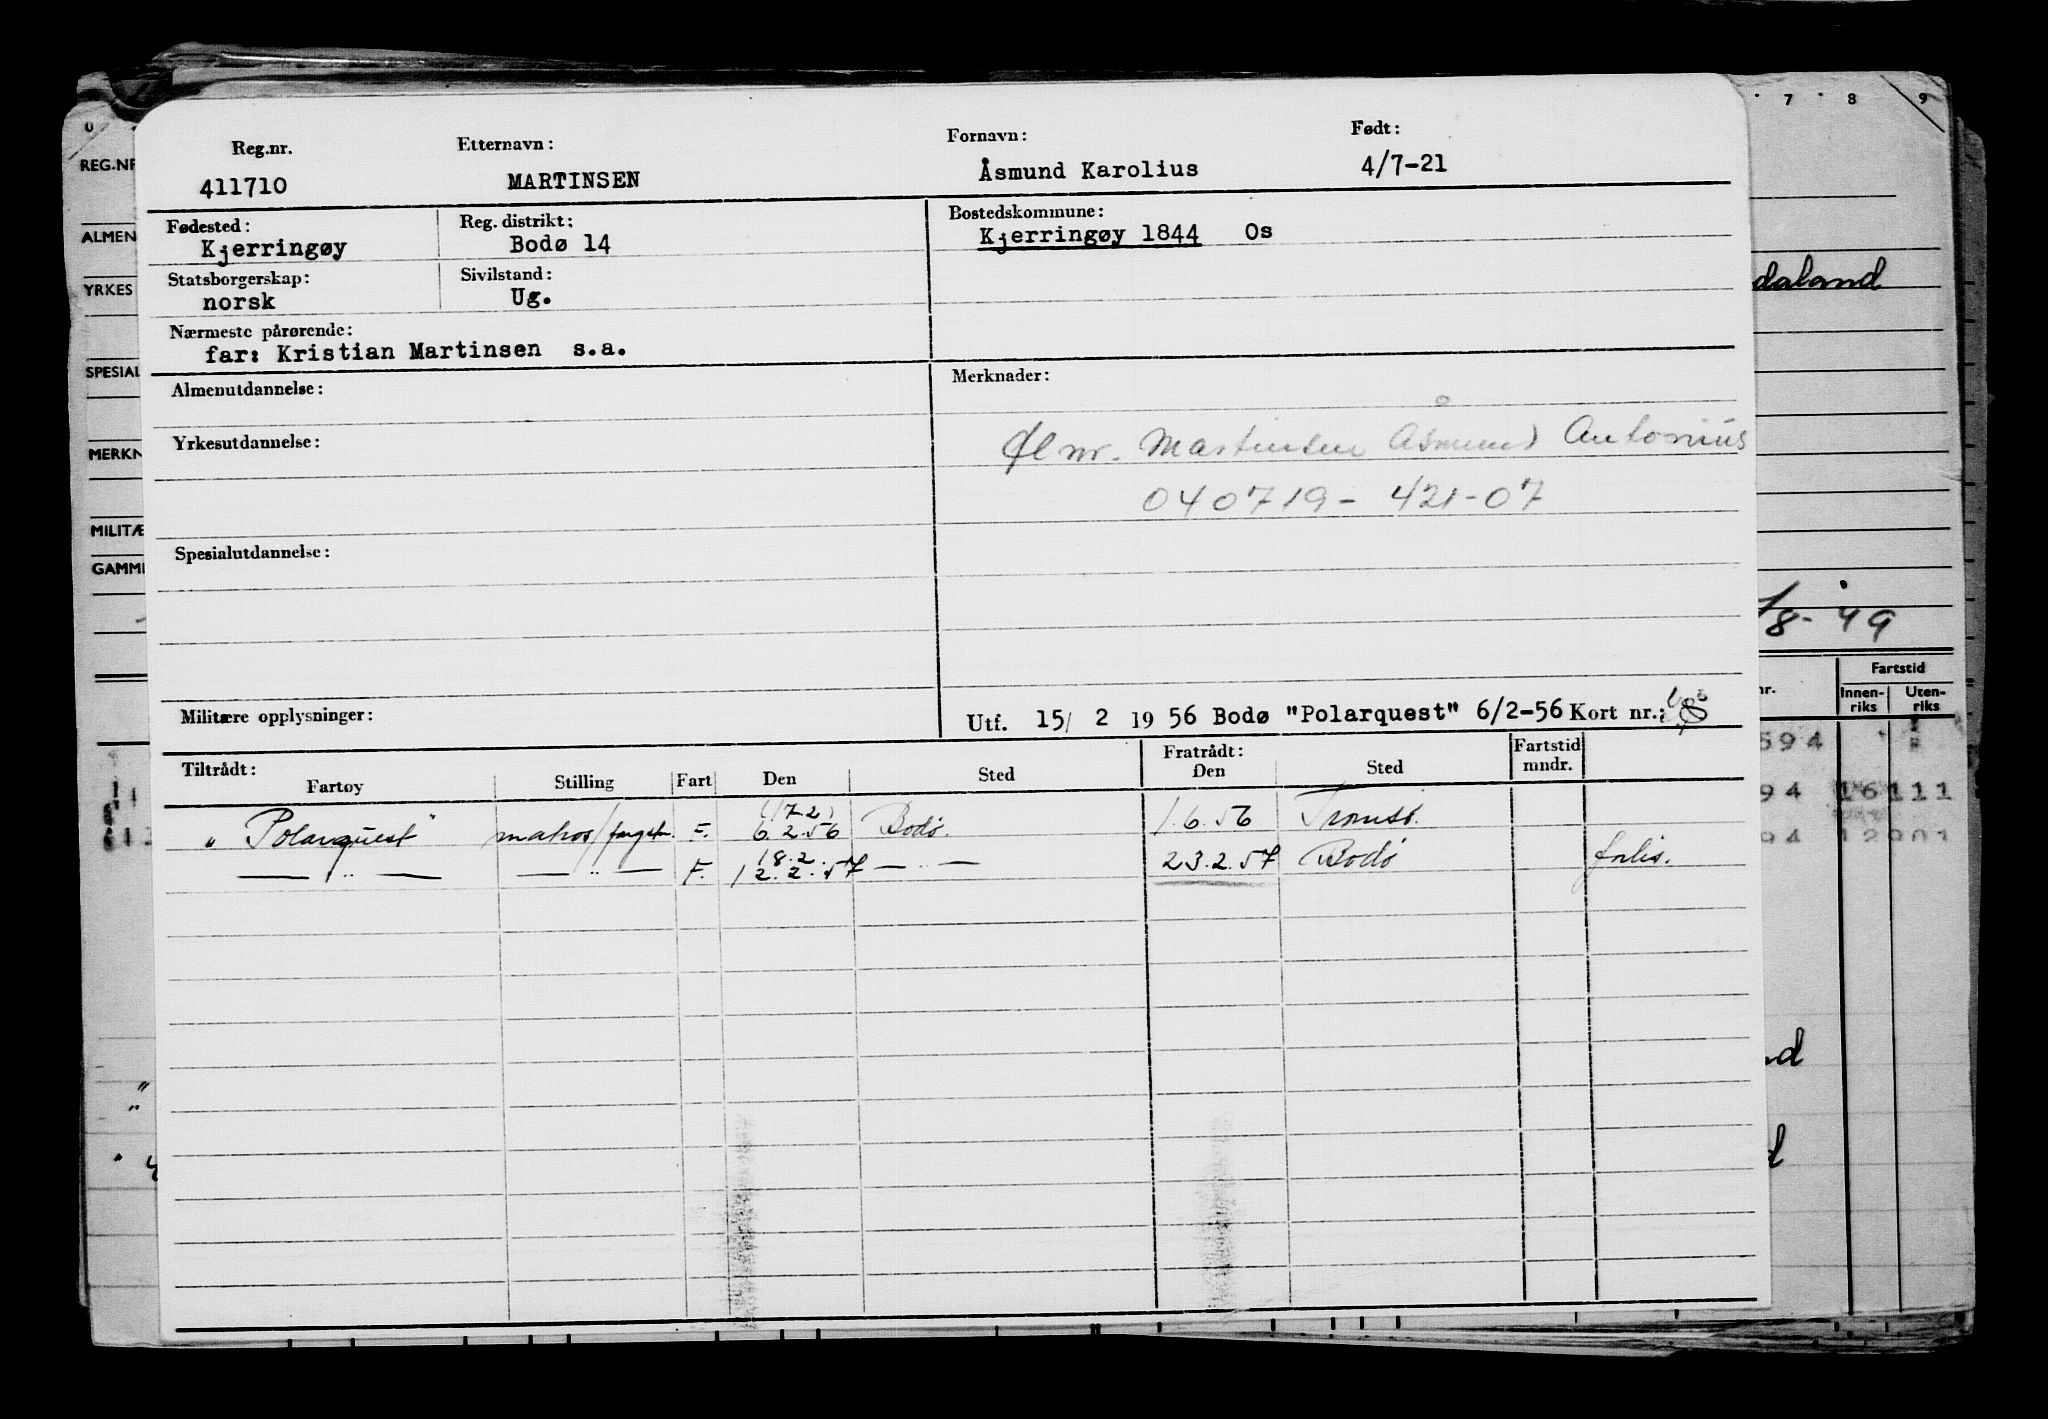 Reg.nr. Etternavn: Fornavn: Født:
411710 MARTINSEN Åsmund Karolius 4/7-21
Fødested: Reg. distrikt: Bostedskommune:
Kjerringøy Bodø 14 Kjerringøy 1844 Os
Statsborgerskap: Sivilstand:
norsk Ug.
Nærmeste pårørende:
far: Kristian Martinsen s.a.
Almenutdannelse: Merknader:
Yrkesutdannelse:
Martinsen Åsmund Antonius
040719-421-07
Spesialutdannelse:
Militære opplysninger: Utf. 15/ 2 19 56 Bodø "Polarquest" 6/2-56 Kort nr.:
Tiltrådt: Fratrådt:
Fartøy Stilling Fart Den Sted Den Sted Fartstid mndr.
(17.2)
"Polarquest" matros/fangstm. F. 6.2.56 Bodø 1.6.56 Tromsø.
18.2.
— " — — " — F. 12.2.57 — " — 23.2.57 Bodø forlis.
0
REG.NR
ALMEN
YRKES
SPESIAL
MERKN
MILITÆ
GAMME
7 8 9
daland
/8-49
nr. Fartstid
Innen-riks Uten-riks
594
94 16 111
94 12901
nd
d